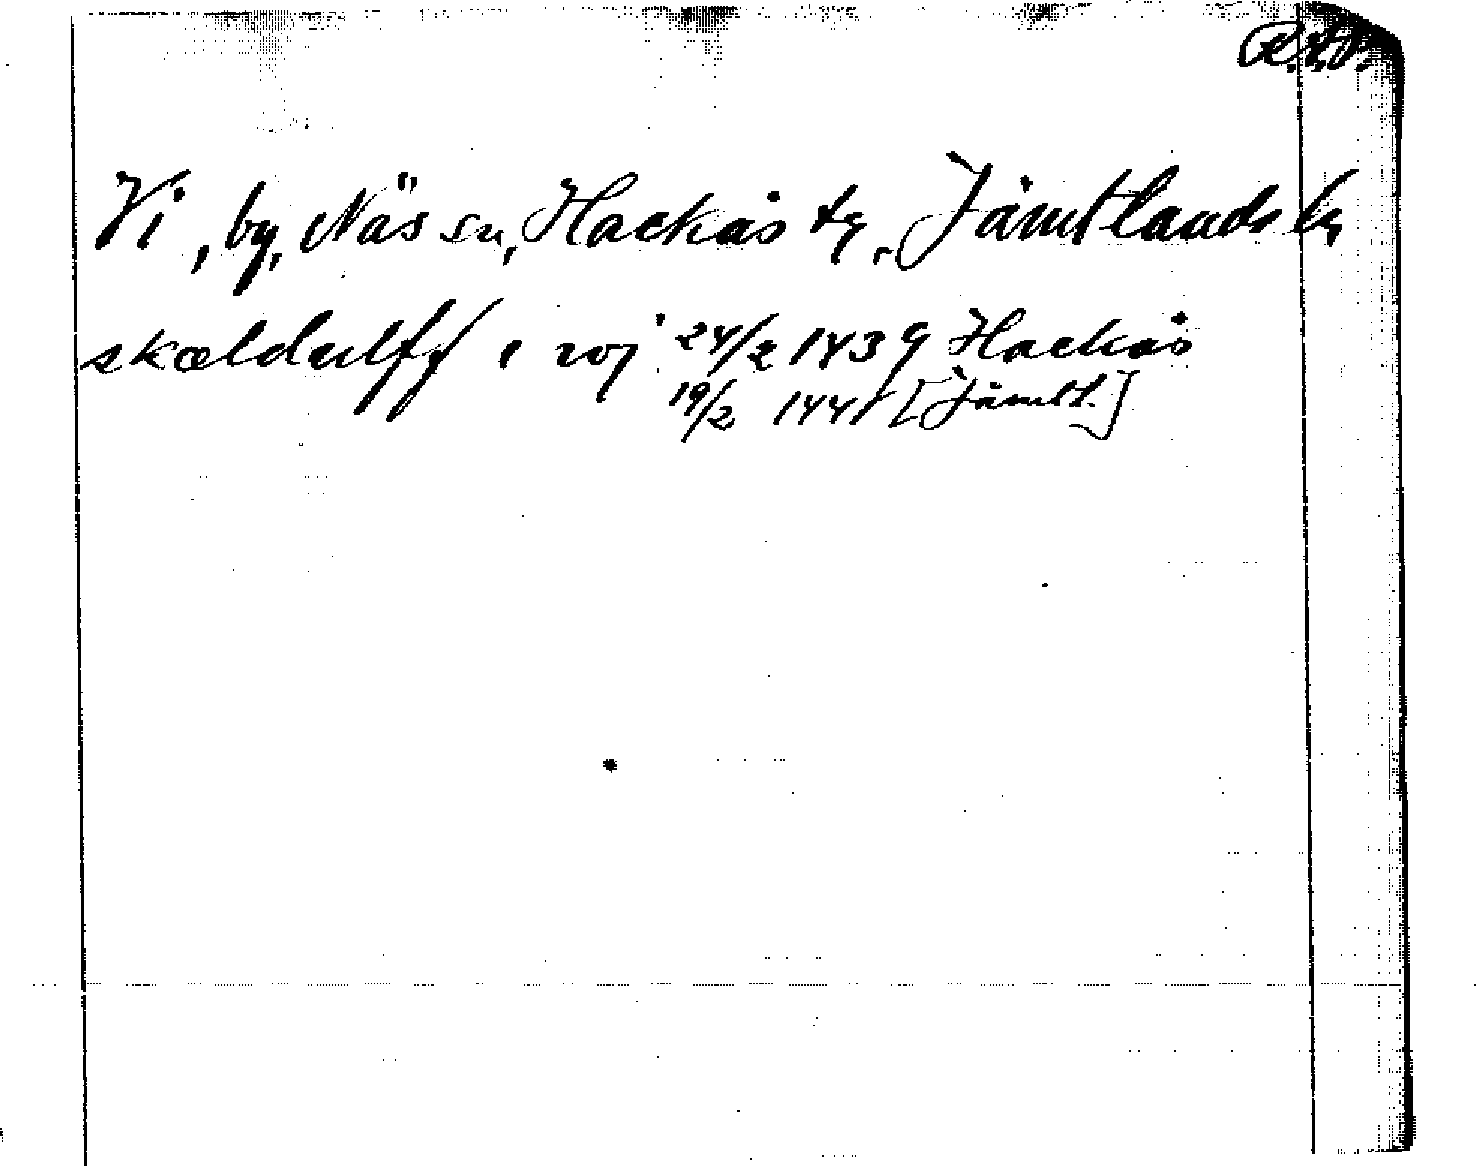 R.A.
Vi, by, Näs sn, Hackås tg, Jämtlands l.
skældulff i wj 24/2 1439 Hackås
19/2 1441 [Jämtl.]